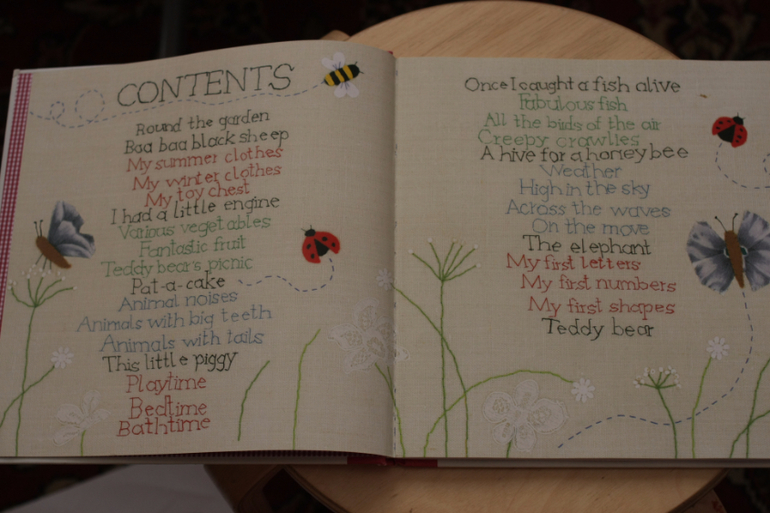 CONTENTS
Round the garden
Baa baa black sheep
My summer clothes
My winter clothes
My toy chest
I had a little engine
Various vegetables
Fantastic fruit
Teddy bear's picnic
Pat-a-cake
Animal noises
Animals with big teeth
Animals with tails
This little piggy
Playtime
Bedtime
Bathtime
Once I caught a fish alive
Fabulous fish
All the birds of the air
Creepy crawlies
A hive for a honey bee
Weather
High in the sky
Across the waves
On the move
The elephant
My first letters
My first numbers
My first shapes
Teddy bear